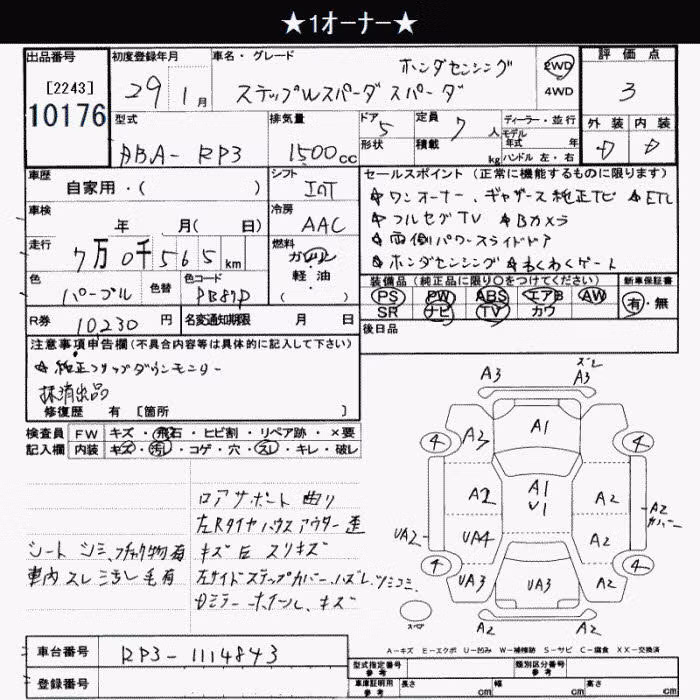 ★1オーナー★
出品番号 初度登録年月 車名・グレード 評価点
[2243]
10176
29 1月
ホンダセンシング
ステップWスパーダ スパーダ
2WD
4WD
3
外装 内装
D D
型式 排気量 ドア 5 定員 7人 ディーラー・並行
ABA- RP3 1500cc
形状 積載 kg モデル年式 年
ハンドル 左・右
車歴 シフト セールスポイント (正常に機能するものに限ります)
自家用・( ) INT
☆ワンオーナー、ギャザーズ純正TV ☆ETC
車検 冷房 ☆フルセグTV ☆Bカメラ
年 月( 日) AAC
☆両側パワースライドドア
走行 燃料 ☆ホンダセンシング ☆わくわくゲート
7万0千565km ガソリン
軽油
( )
色 色替 色コード
パープル PB87P
装備品 (純正品に限り○をつけてください) 新車保証書
PS PW ABS エアB AW 有・無
SR ナビ TV カワ
R券 10230円 名変通知期限 月 日 後日品
注意事項申告欄(不具合内容等は具体的に記入して下さい)
☆純正フリップダウンモニター
抹消出品
修復歴 有 [箇所 ]
検査員 FW キズ・飛石・ヒビ割・リペア跡・×要
記入欄 内装 キズ・汚レ・コゲ・穴・スレ・キレ・破レ
ロアサポート 曲り
左Rタイヤハウスアウター 歪
シート シミ、フチャク物有 キズ 凹 スリキズ
車内 スレ 汚レ 毛有 左サイドステップカバー、ハズレ、ツメコミ
Dミラー ホイール、キズ
A3 ズレ A3
4 A3 A1 4
A2 A1 V1 A2
UA2 UA4 A2 A2 カバー
4 UA3 UA3 A2 4
スペア A2 A2
A-キズ E-エクボ U-凹み W-補修跡 S-サビ C-腐食 XX-交換済
車台番号 RP3-1114843
登録番号
型式指定番号 参考 類別区分番号 参考
車庫証明用 参考 長さ cm 幅 cm 高さ cm